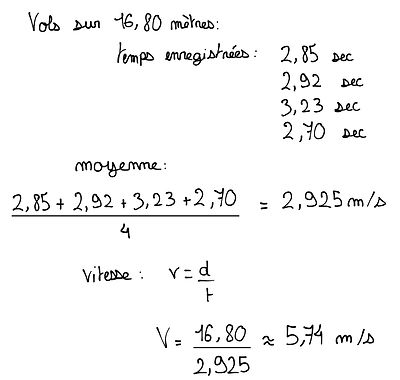 Vols sur 16,80 mètres:
temps enregistrées: 2,85 sec
2,92 sec
3,23 sec
2,70 sec
moyenne:
2,85 + 2,92 + 3,23 + 2,70 / 4 = 2,925 m/s
vitesse: v = d / t
V = 16,80 / 2,925 ≈ 5,74 m/s